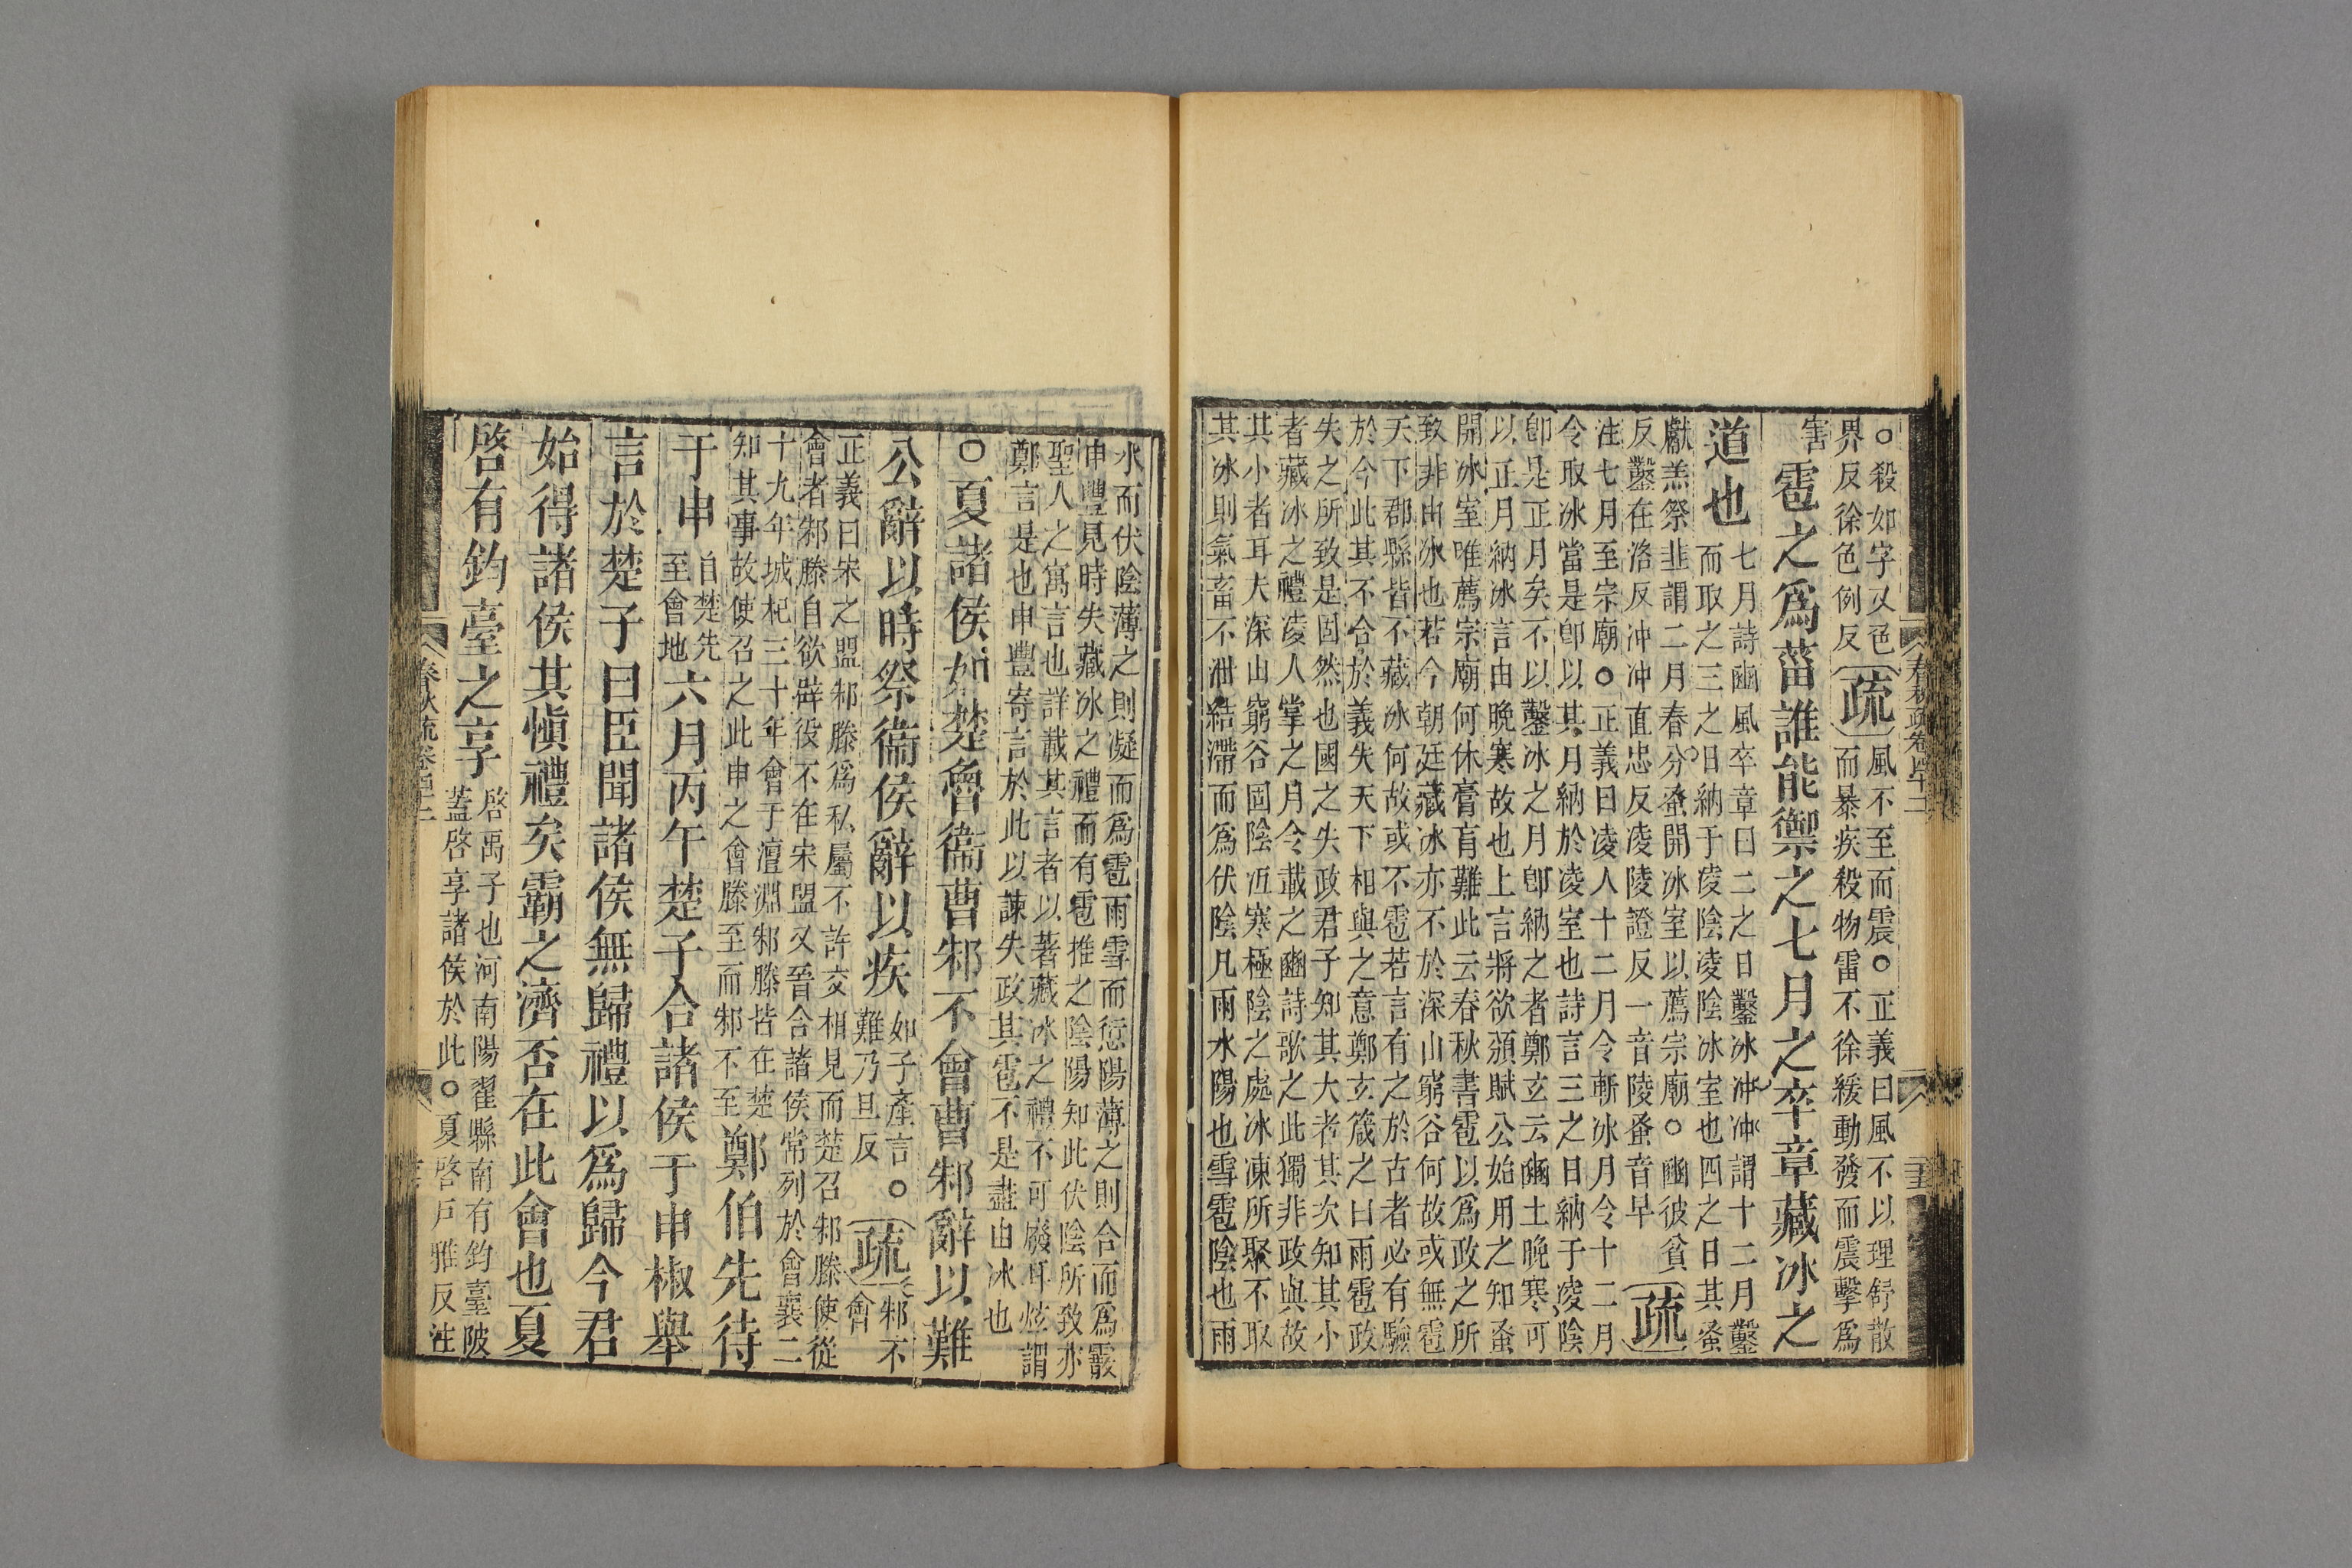 ○殺如字又色
界反徐色例反
疏
風不至而震○正義曰風不以理舒散
而暴疾殺物雷不徐緩動發而震擊爲
害
雹之爲菑誰能禦之七月之卒章藏冰之
道也
七月詩豳風卒章曰二之日鑿冰沖沖謂十二月鑿
而取之三之日納于凌陰凌陰冰室也四之日其蚤
獻羔祭韭謂二月春分蚤開冰室以薦宗廟○豳彼貧
反鑿在洛反沖沖直忠反凌陵證反一音陵蚤音早
疏
注七月至宗廟○正義曰凌人十二月令斬冰月令十二月
令取冰當是即以其月納於凌室也詩言三之日納于凌陰
即是正月矣不以鑿冰之月即納之者鄭玄云豳土晚寒可
以正月納冰言由晚寒故也上言將欲頒賦公始用之知蚤
開冰室唯薦宗廟何休膏肓難此云春秋書雹以爲政之所
致非由冰也若今朝廷藏冰亦不於深山窮谷何故或無雹
天下郡縣皆不藏冰何故或不雹若言有之於古者必有驗
於今此其不合於義失天下相與之意鄭玄箴之曰雨雹政
失之所致是固然也國之失政君子知其大者其次知其小
者藏冰之禮凌人掌之月令載之豳詩歌之此獨非政與故
其小者耳夫深山窮谷固陰冱寒極陰之處冰凍所聚不取
其冰則氣畜不泄結滯而爲伏陰凡雨水陽也雪雹陰也雨
水而伏陰薄之則凝而爲雹雨雪而愆陽薄之則合而爲霰
申豐見時失藏冰之禮而有雹推之陰陽知此伏陰所致亦
聖人之寓言也詳載其言者以著藏冰之禮不可廢耳炫謂
鄭言是也申豐寄言於此以諫失政其雹不是盡由冰也
○夏諸侯如楚魯衞曹邾不會曹邾辭以難
公辭以時祭衞侯辭以疾
如子產言○
難乃旦反
疏
邾不
會
正義曰宋之盟邾滕爲私屬不許交相見而楚召邾滕使從
會者邾滕自欲辟役不在宋盟又晉合諸侯常列於會襄二
十九年城杞三十年會于澶淵邾滕皆在楚
知其事故使召之此申之會滕至而邾不至
鄭伯先待
于申
自楚先
至會地
六月丙午楚子合諸侯于申椒舉
言於楚子曰臣聞諸侯無歸禮以爲歸今君
始得諸侯其愼禮矣霸之濟否在此會也夏
啓有鈞臺之享
啓禹子也河南陽翟縣南有鈞臺陂
蓋啓享諸侯於此○夏啓戶雅反注
春秋疏卷四十二